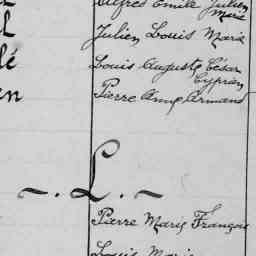 Alfred Emile Julien
Marie
Julien Louis Marie
Louis Auguste César
Cyprien
Pierre Anne Armand
-. L. -
Pierre Marie François
Louis Marie